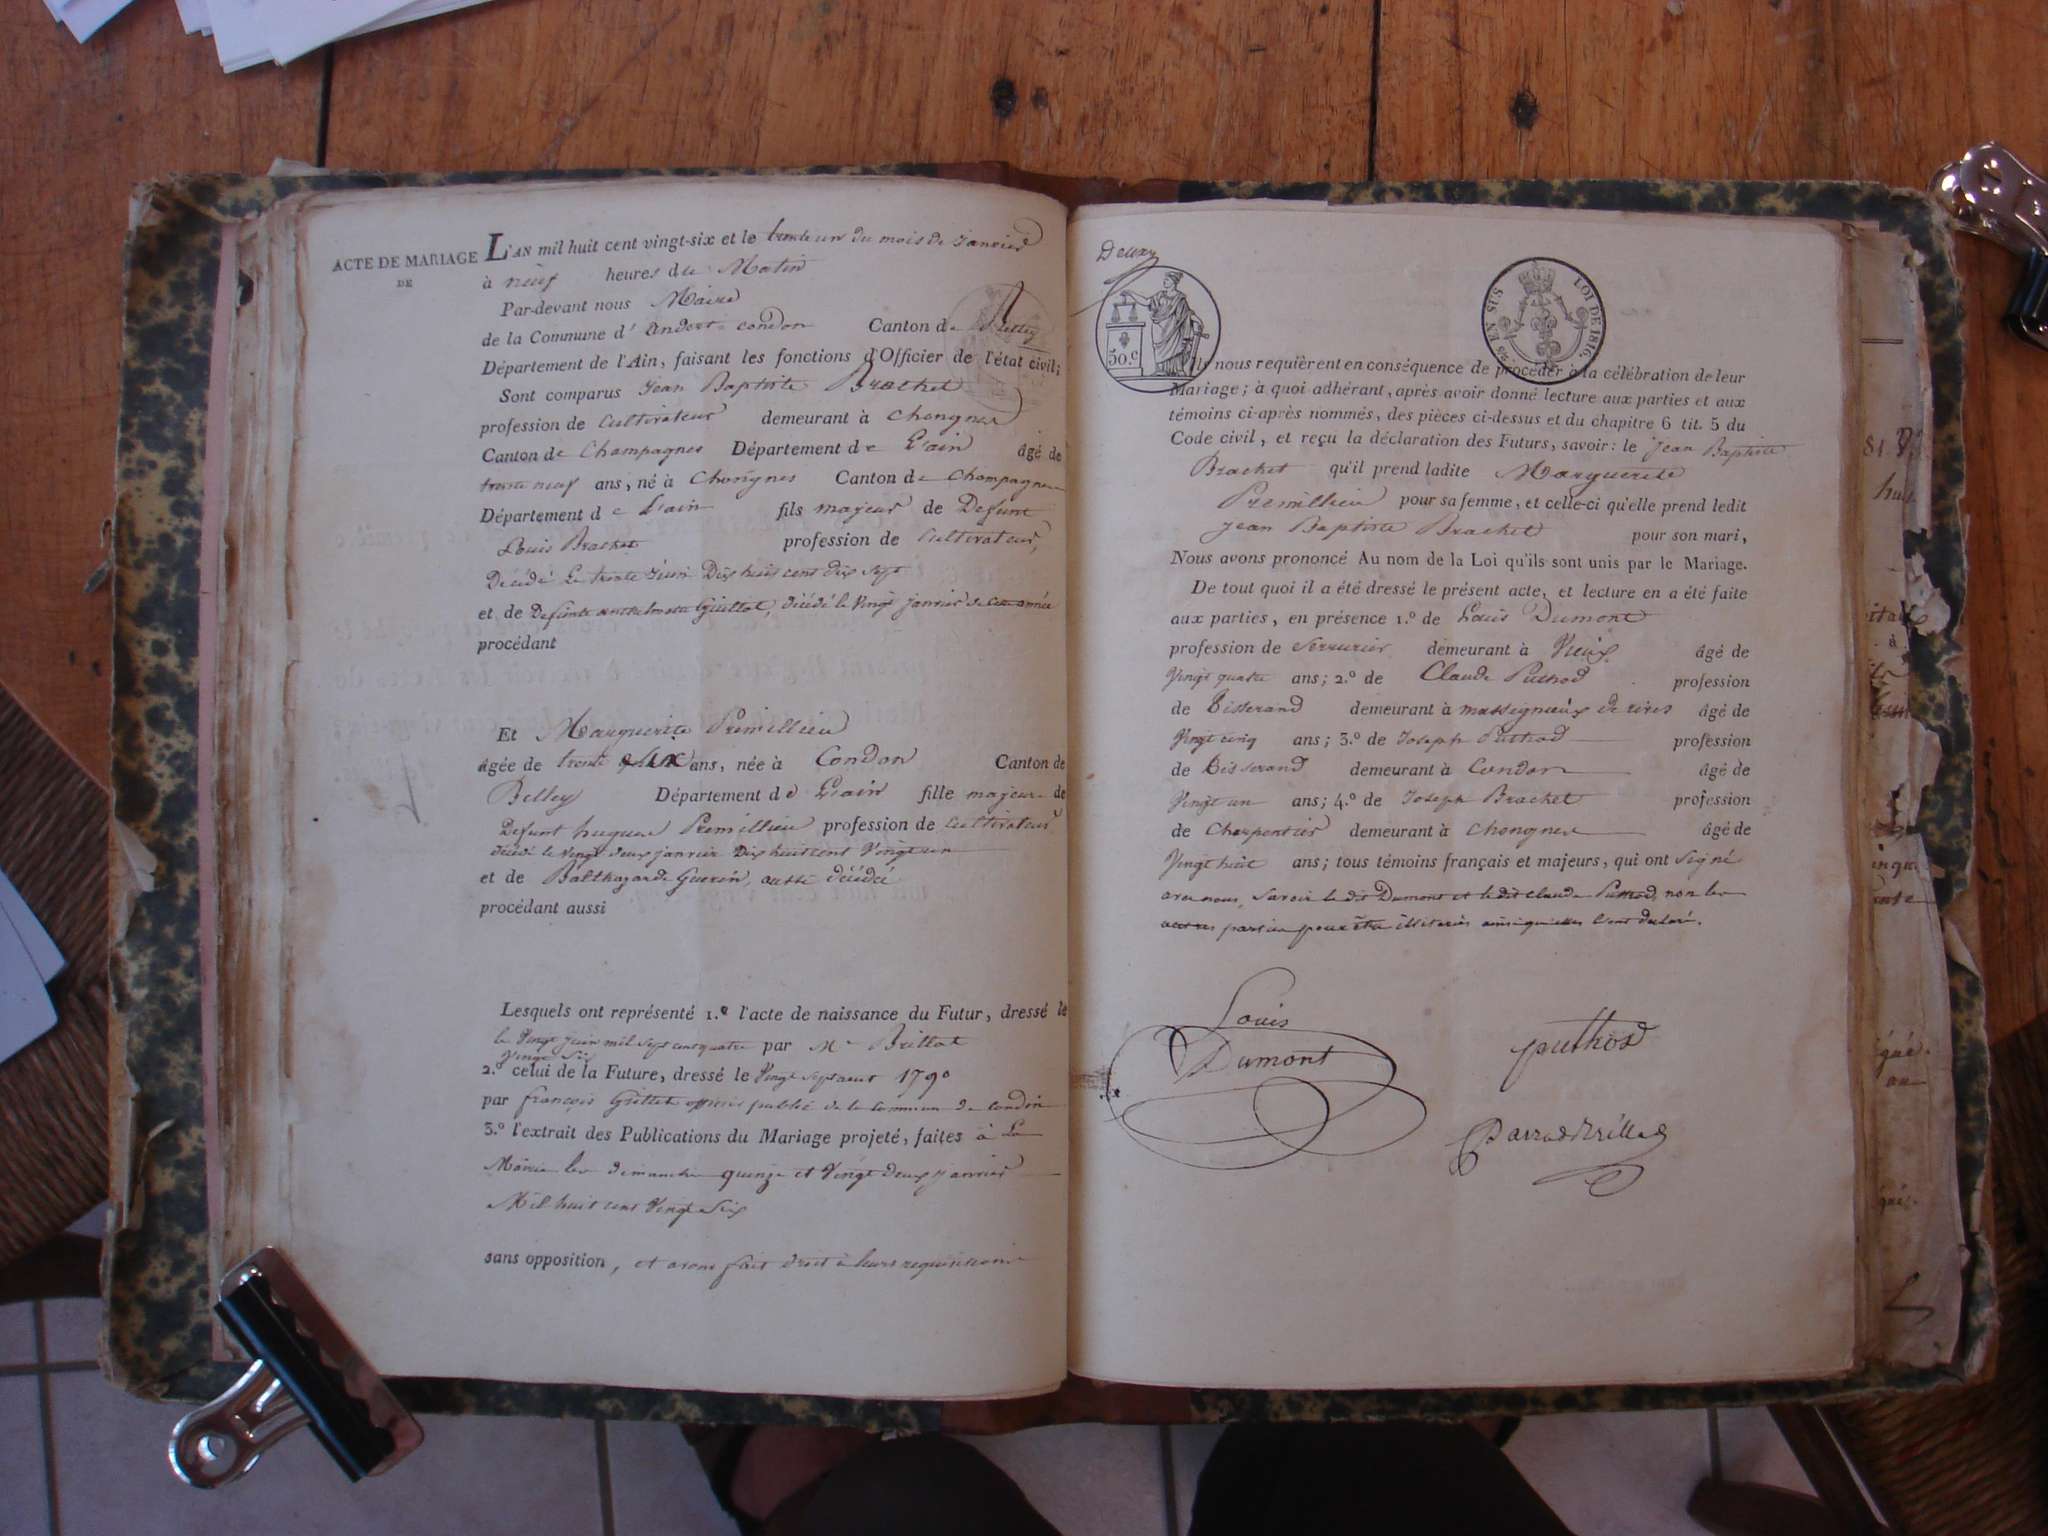 ACTE DE MARIAGE
DE
L'AN mil huit cent vingt-six et le trente un du mois de Janvier
à neuf heures du Matin
Par-devant nous Maire
de la Commune d' andert-condon Canton de Belley
Département de l'Ain, faisant les fonctions d'Officier de l'état civil;
Sont comparus Jean Baptiste Brachet
profession de Cultivateur demeurant à Chongnes
Canton de Champagne Département de L'ain âgé de
trente neuf ans, né à Chongnes Canton de Champagne
Département de L'ain fils majeur de Defunt
Louis Brachet profession de Cultivateur,
Décédé Le trente Juin Dix huit cent dix Sept
et de Defunte anthelmette Guillot, décédé le Vingt Janvier de cette année
procédant
Et Marguerite Premillieu
âgée de trente six ans, née à Condon Canton de
Belley Département de L'ain fille majeure de
Defunt hugues Premillieu profession de Cultivateur
décédé le Vingt deux janvier Dix huit cent Vingt un
et de Balthazarde Guerin, aussi décédée
procédant aussi
Lesquels ont représenté 1.° l'acte de naissance du Futur, dressé le
le Vingt Juin mil sept cent quatre par Mr Brillat
Vingt Six
2.° celui de la Future, dressé le Vingt Sept aout 1790
par françois Grillet officier public de la commune de condon
3.° l'extrait des Publications du Mariage projeté, faites à La
Mairie les dimanche quinze et Vingt Deux Janvier
Mil huit cent Vingt Six
sans opposition, et avons fait droit à leurs requisitions
Deux
50.c
25 EN SUS LOI DE 1816.
Ils nous requièrent en conséquence de procéder à la célébration de leur
Mariage; à quoi adhérant, après avoir donné lecture aux parties et aux
témoins ci-après nommés, des pièces ci-dessus et du chapitre 6 tit. 5 du
Code civil, et reçu la déclaration des Futurs, savoir: le Jean Baptiste
Brachet qu'il prend ladite Marguerite
Premillieu pour sa femme, et celle-ci qu'elle prend ledit
Jean Baptiste Brachet pour son mari,
Nous avons prononcé Au nom de la Loi qu'ils sont unis par le Mariage.
De tout quoi il a été dressé le présent acte, et lecture en a été faite
aux parties, en présence 1.° de Louis Dumont
profession de Serrurier demeurant à Vieux âgé de
Vingt quatre ans; 2.° de Claude Puthod profession
de Tisserand demeurant à massegnieux de rives âgé de
Vingt cinq ans; 3.° de Joseph Puthod profession
de Tisserand demeurant à Condon âgé de
Vingt un ans; 4.° de Joseph Brachet profession
de Charpentier demeurant à Chongnes âgé de
Vingt huit ans; tous témoins français et majeurs, qui ont Signé
avec nous, Savoir le dit Dumont et le dit Claude Puthod, non les
autres parties pour être illiterés ainsi qu'elles l'ont declaré.
Louis
Dumont
puthod